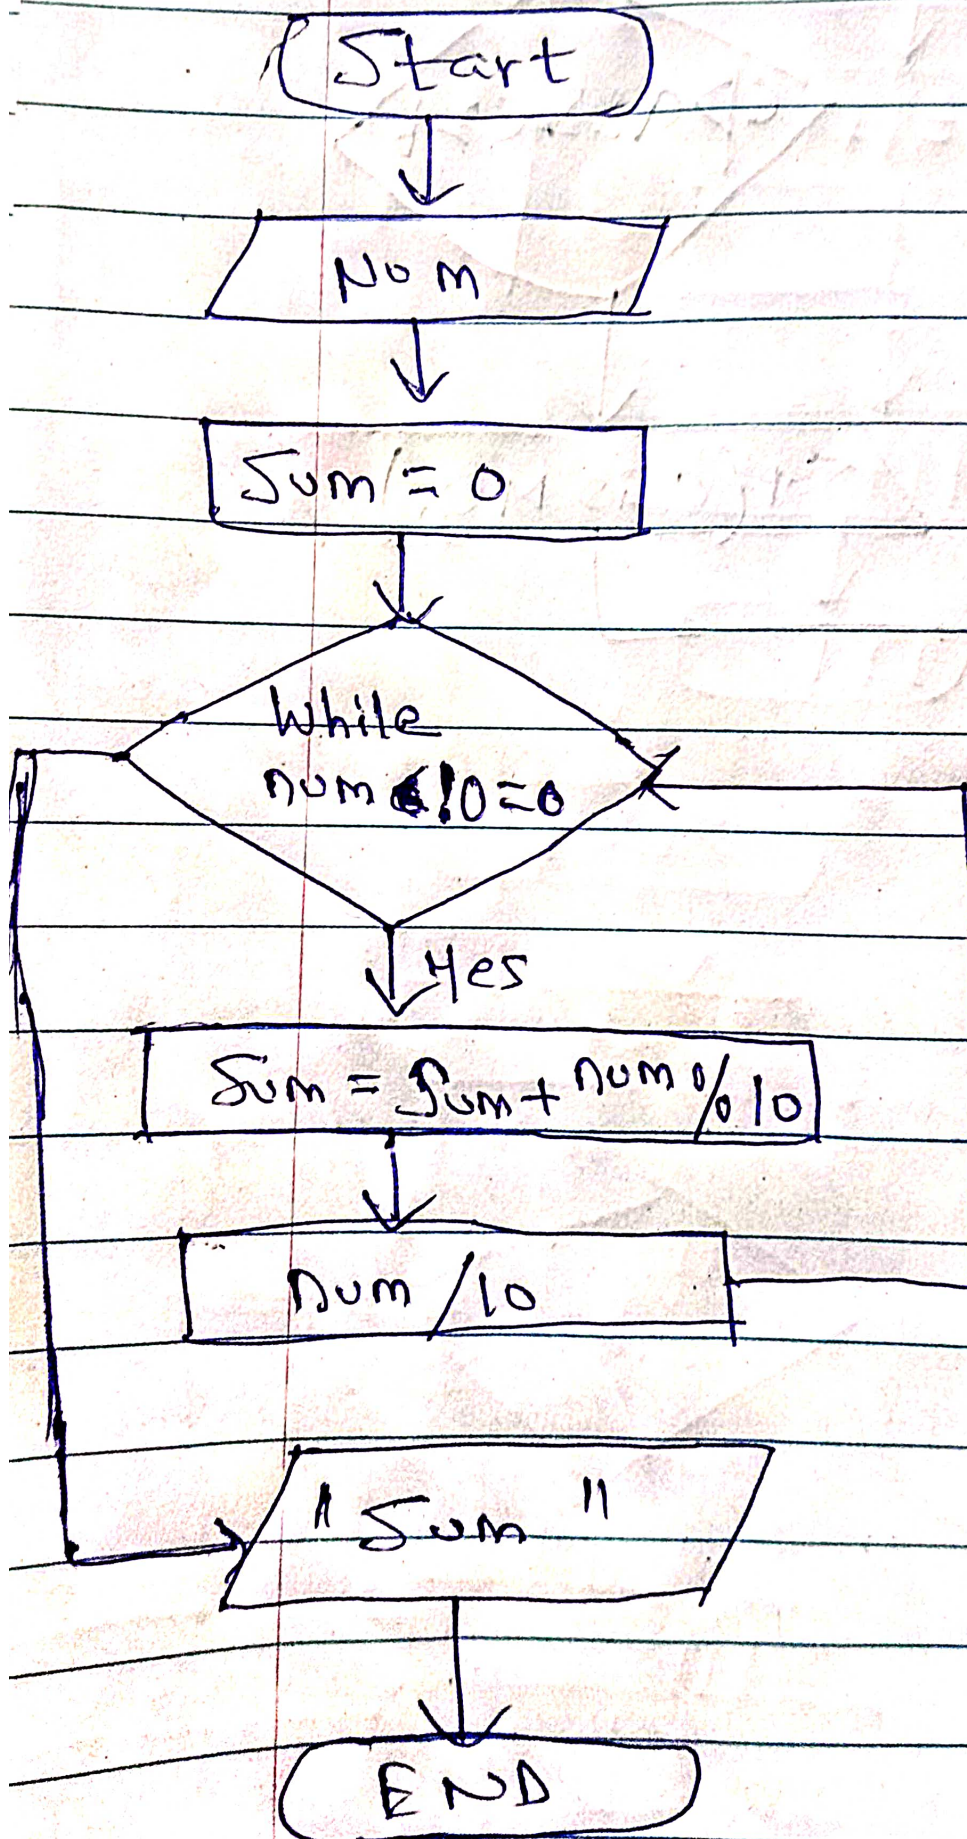 Start
Num
Sum = 0
While
num !0=0
Yes
Sum = Sum + num % 10
num /10
"Sum"
END